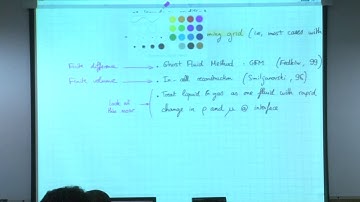 ming grid (in most cases with
Finite difference → • Ghost Fluid Method - GFM (Fedkiw, 99)
Finite volume → • In-cell reconstruction (Smiljanovski, 96)
Look at this now → • Treat liquid & gas as one fluid with rapid
change in ρ and μ @ interface